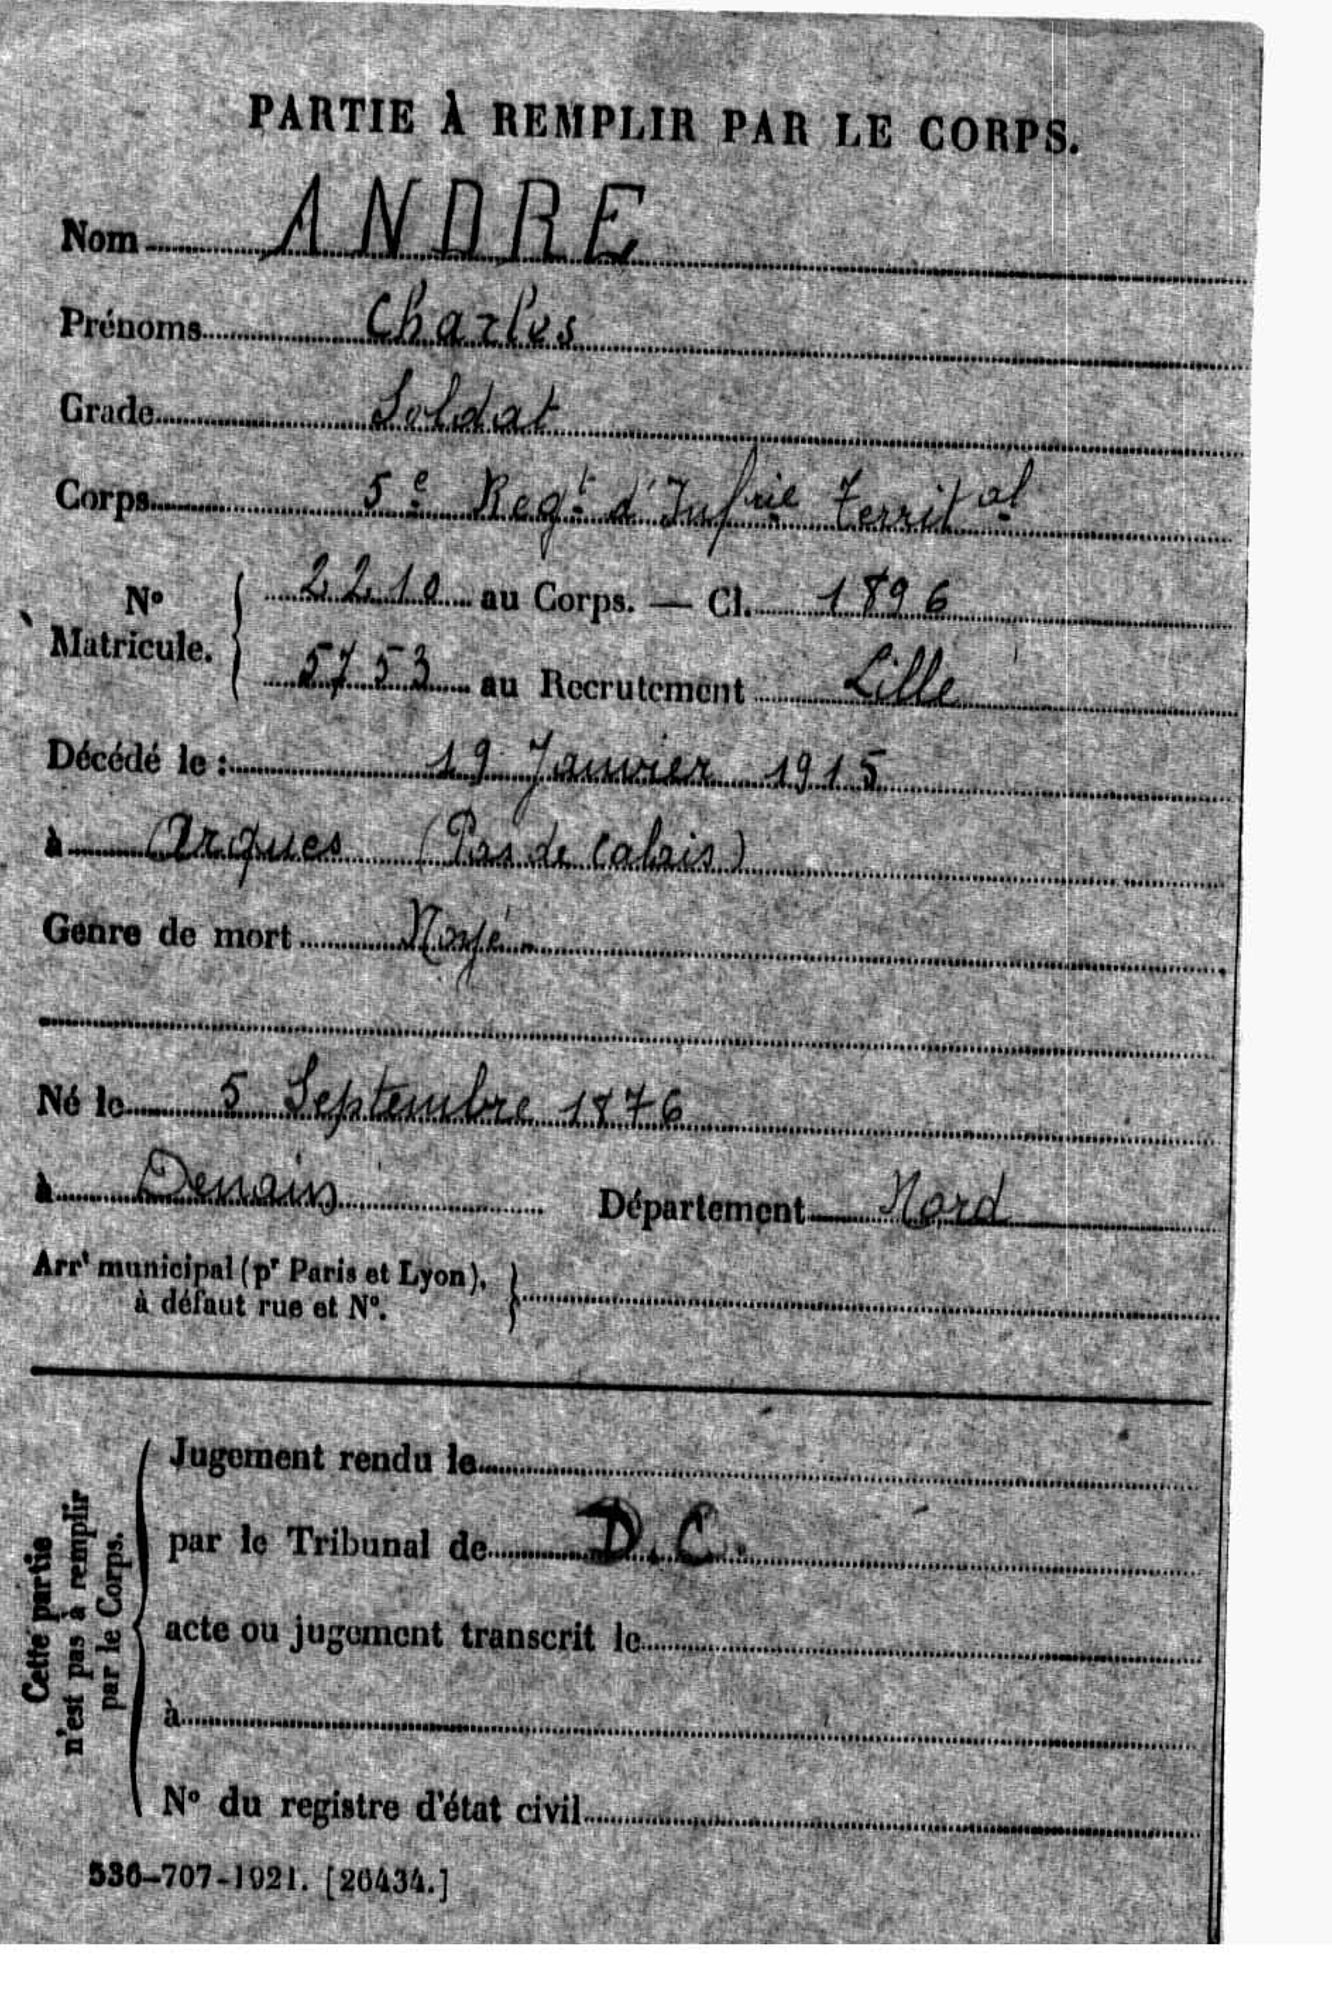 PARTIE À REMPLIR PAR LE CORPS.
Nom ANDRE
Prénoms Charles
Grade Soldat
Corps 5e Regt d'Infrie Territal
No Matricule. 2210 au Corps. — Cl. 1896
5753 au Recrutement Lille
Décédé le : 19 Janvier 1915
à Arques (Pas de Calais)
Genre de mort Noyé
Né le 5 Septembre 1876
à Denain Département Nord
Arrt municipal (pr Paris et Lyon),
à défaut rue et No.
Cette partie
n'est pas à remplir
par le Corps.
Jugement rendu le
par le Tribunal de D.C.
acte ou jugement transcrit le
à
No du registre d'état civil
536-707-1921. [26434.]